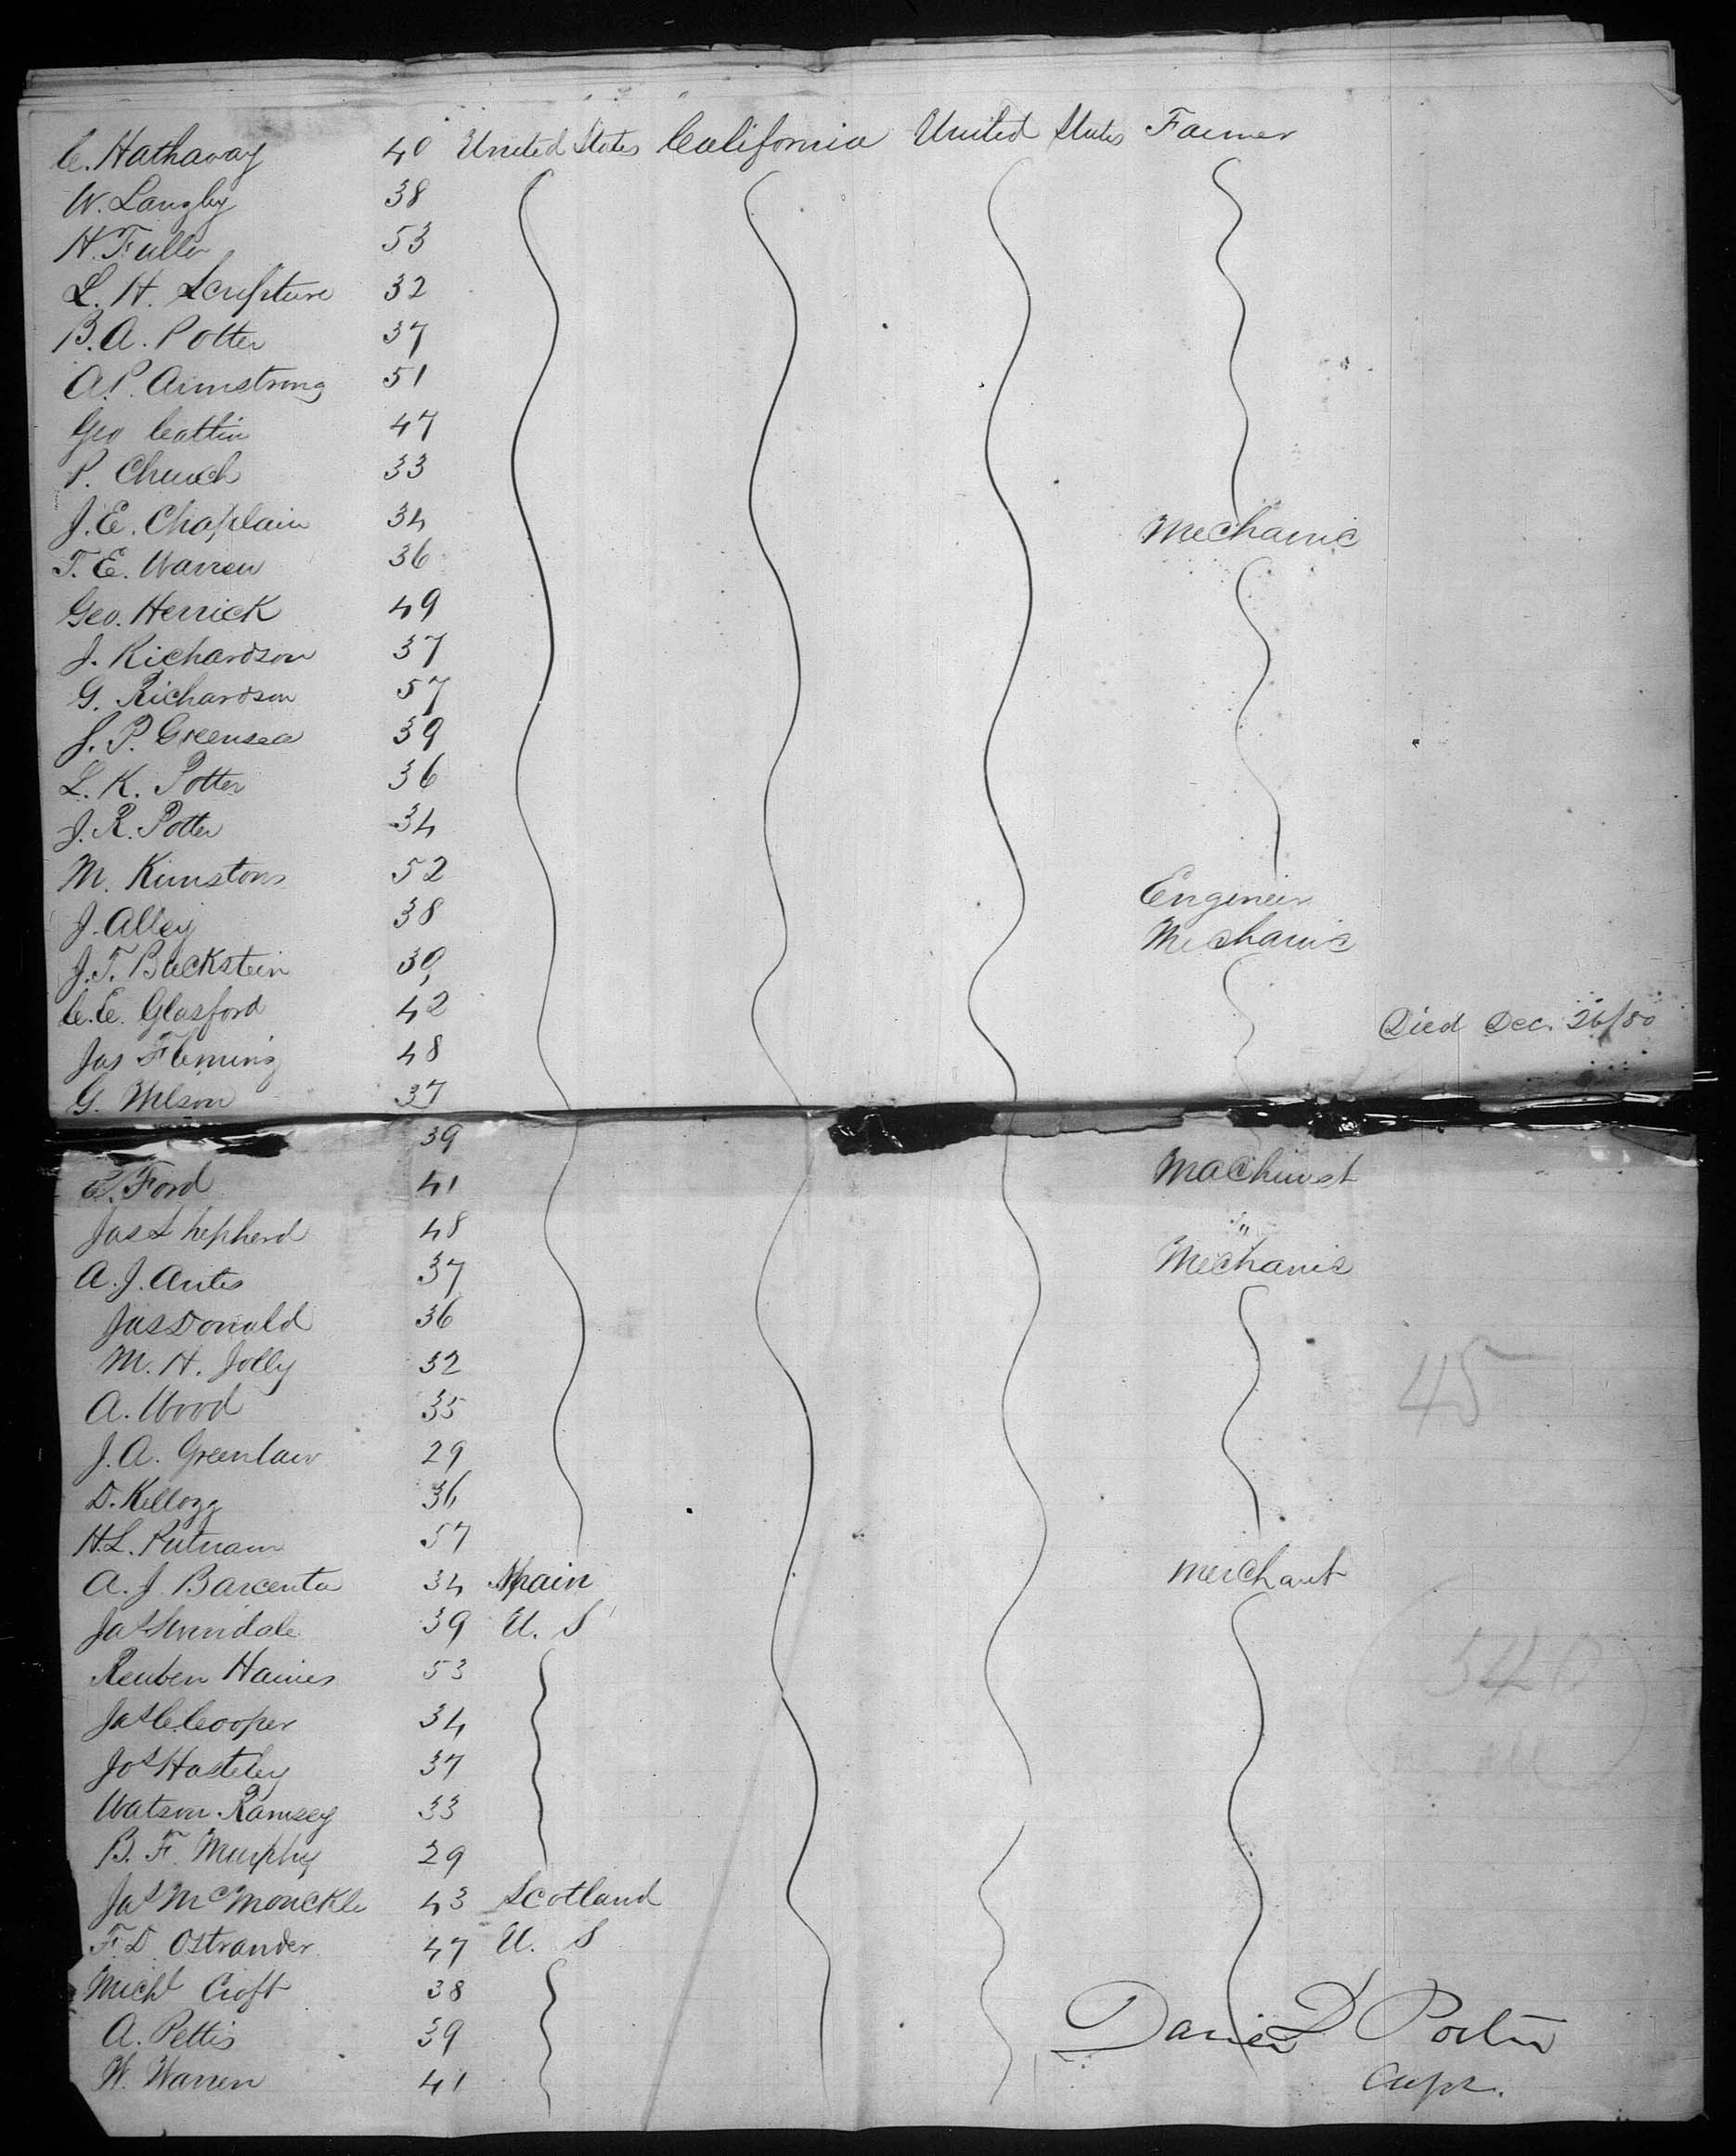 C. Hathaway 40 United States California United States Farmer
W. Langly 38
H. Fuller 53
L. H. Scripture 32
B. A. Potter 37
A. P. Armstrong 51
Geo Cattin 47
P. Church 33
J. E. Chaplain 34 Mechanic
T. E. Warren 36
Geo. Herrick 49
J. Richardson 37
G. Richardson 57
J. P. Greensea 39
L. K. Potter 36
J. R. Potter 34
M. Kimstons 52 Engineer
J. Alley 38 Mechanic
J. T. Buckstein 39
C. E. Glasford 42 Died Dec. 26/80
Jas Fleming 48
G. Wilson 37
39
C. Ford 41 Machinest
Jas Shepherd 48 "
A. J. Antes 37 Mechanic
Jas Donald 36
M. H. Jolly 32
A. Wood 35 45
J. A. Greenlaw 29
D. Kellogg 36
H. L. Putnam 57
A. J. Barcenta 34 Spain Merchant
Jas 39 U. S
Reuben Haines 53
Jas C. Cooper 34
Jos Hasteley 37
Watson Ramsey 33
B. F. Murphy 29
Jas McMonckle 43 Scotland
F. D. Ostrander 47 U. S
Michl Croft 38
A. Pettis 39 Daniel D Porter
W. Warren 41 Capt.